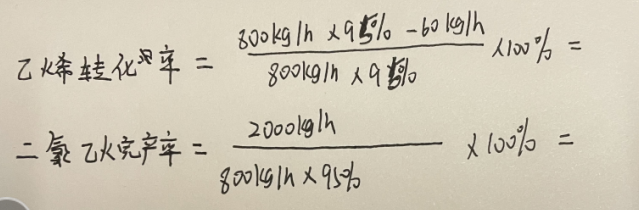 乙烯转化率 = (800kg/h × 95% - 60kg/h) / (800kg/h × 95%) × 100% =
二氯乙烷产率 = 2000kg/h / (800kg/h × 95%) × 100% =